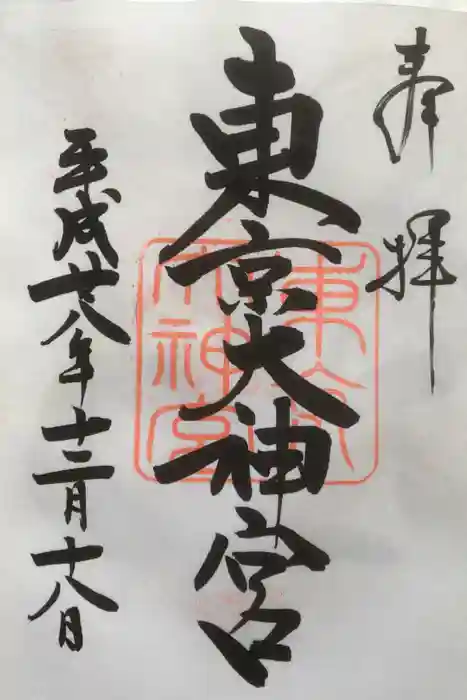 奉拝
東京大神宮
平成廿八年十二月十八日
東京
大神宮